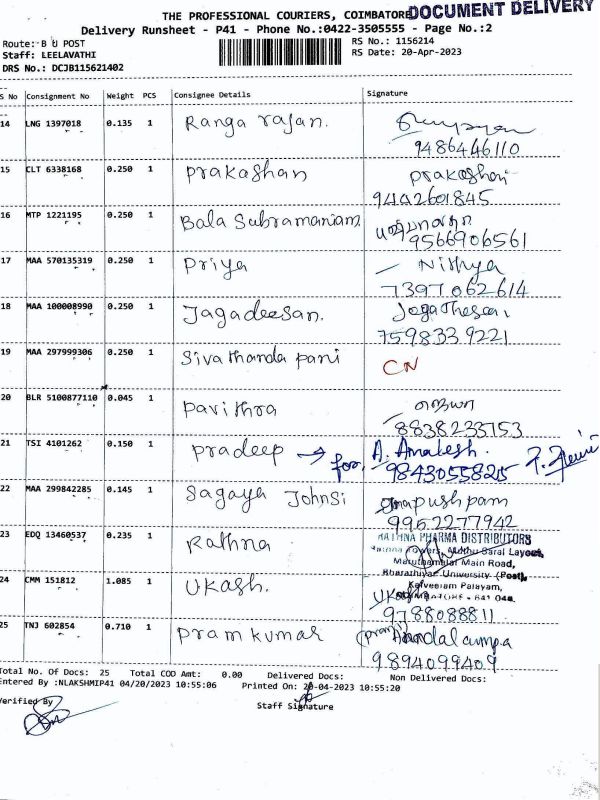 DOCUMENT DELIVERY
THE PROFESSIONAL COURIERS, COIMBATORE
Delivery Runsheet - P41 - Phone No.:0422-3505555 - Page No.:2
Route: B U POST
RS No.: 1156214
Staff: LEELAVATHI
RS Date: 20-Apr-2023
DRS No.: DCJB115621402
S No Consignment No Weight PCS Consignee Details Signature
14 LNG 1397018 0.135 1 Ranga rajan.
9486446110
15 CLT 6338168 0.250 1 Prakashan Prakashan
9442601845
16 MTP 1221195 0.250 1 Bala Subramaniam
9566906561
17 MAA 570135319 0.250 1 Priya Nithya
7397062614
18 MAA 100008990 0.250 1 Jagadeesan. Jagatheesan
7598339221
19 MAA 297999306 0.250 1 Sivathanda pani CN
20 BLR 5100877110 0.045 1 Pavithra
8838233753
21 TSI 4101262 0.150 1 Pradeep → for A. Amalesh.
9843055825
22 MAA 299842285 0.145 1 Sagaya Johnsi pushpam
9952277942
23 EDQ 13460537 0.235 1 Rathna
RATHNA PHARMA DISTRIBUTORS
Rathna Towers, Muthu Saral Layout,
Maruthamalai Main Road,
Bharathiyar University (Post),
Kalveeram Palayam,
COIMBATORE - 641 046.
24 CMM 151812 1.085 1 Ukash. Ukash
9788088811
25 TNJ 602854 0.710 1 Pramkumar
9894099409
Total No. Of Docs: 25 Total COD Amt: 0.00 Delivered Docs: Non Delivered Docs:
Entered By :NLAKSHMIP41 04/20/2023 10:55:06 Printed On: 20-04-2023 10:55:20
Verified By
Staff Signature